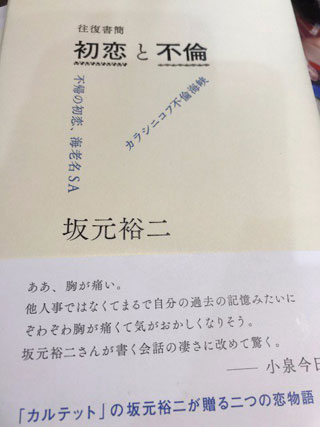 往復書簡
初恋と不倫
不帰の初恋、海老名SA
カラシニコフ不倫海峡
坂元裕二
ああ、胸が痛い。
他人事ではなくてまるで自分の過去の記憶みたいに
ぞわぞわ胸が痛くて気がおかしくなりそう。
坂元裕二さんが書く会話の凄さに改めて驚く。
── 小泉今日
「カルテット」の坂元裕二が贈る二つの恋物語